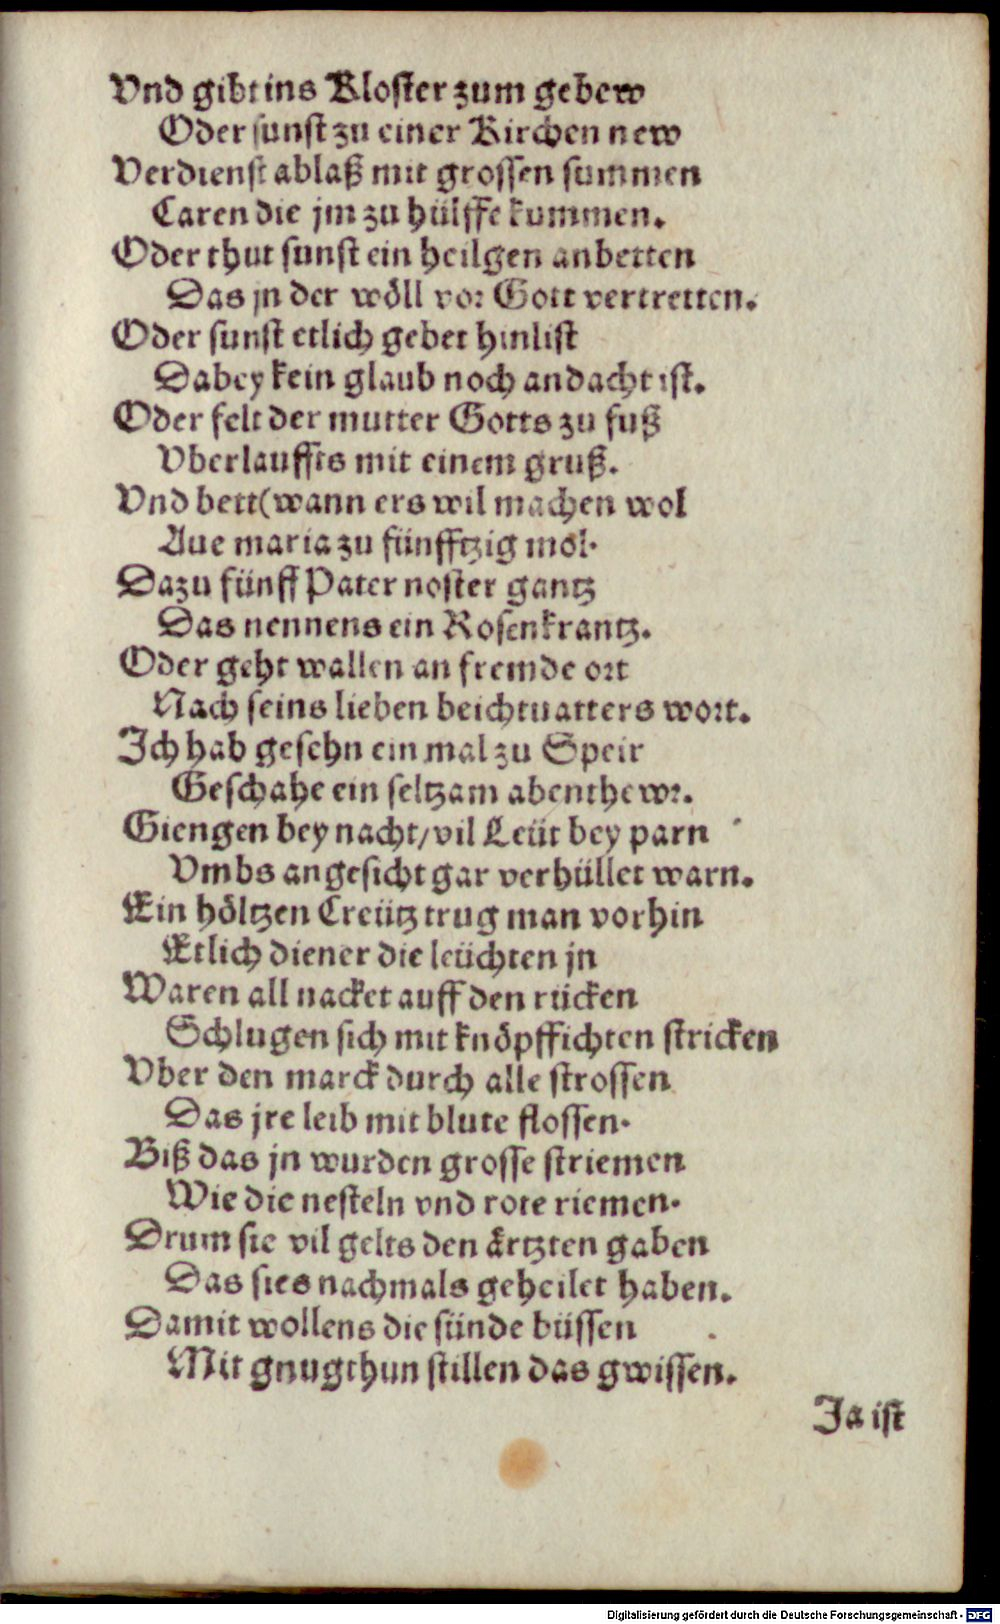 Vnd gibt ins Kloster zum gebew
Oder sunst zu einer Kirchen new
Verdienst ablaß mit grossen summen
Caren die jm zu hülffe kummen.
Oder thut sunst ein heilgen anbetten
Das jn der wöll vor Gott vertretten.
Oder sunst etlich gebet hinlist
Dabey kein glaub noch andacht ist.
Oder felt der mutter Gotts zu fuß
Vberlauffts mit einem gruß.
Vnd bett(wann ers wil machen wol
Aue maria zu fünfftzig mol.
Dazu fünff Pater noster gantz
Das nennens ein Rosenkrantz.
Oder geht wallen an fremde ort
Nach seins lieben beichtuatters wort.
Ich hab gesehn ein mal zu Speir
Geschahe ein seltzam abenthewr.
Giengen bey nacht/vil Leüt bey parn
Vmbs angesicht gar verhüllet warn.
Ein höltzen Creütz trug man vorhin
Etlich diener die leüchten jn
Waren all nacket auff den rücken
Schlugen sich mit knöpffichten stricken
Vber den marck durch alle strossen
Das jre leib mit blute flossen.
Biß das jn wurden grosse striemen
Wie die nesteln vnd rote riemen.
Drum sie vil gelts den ärtzten gaben
Das sies nachmals geheilet haben.
Damit wollens die sünde büssen
Mit gnugthun stillen das gwissen.
Ja ist
Digitalisierung gefördert durch die Deutsche Forschungsgemeinschaft - DFG